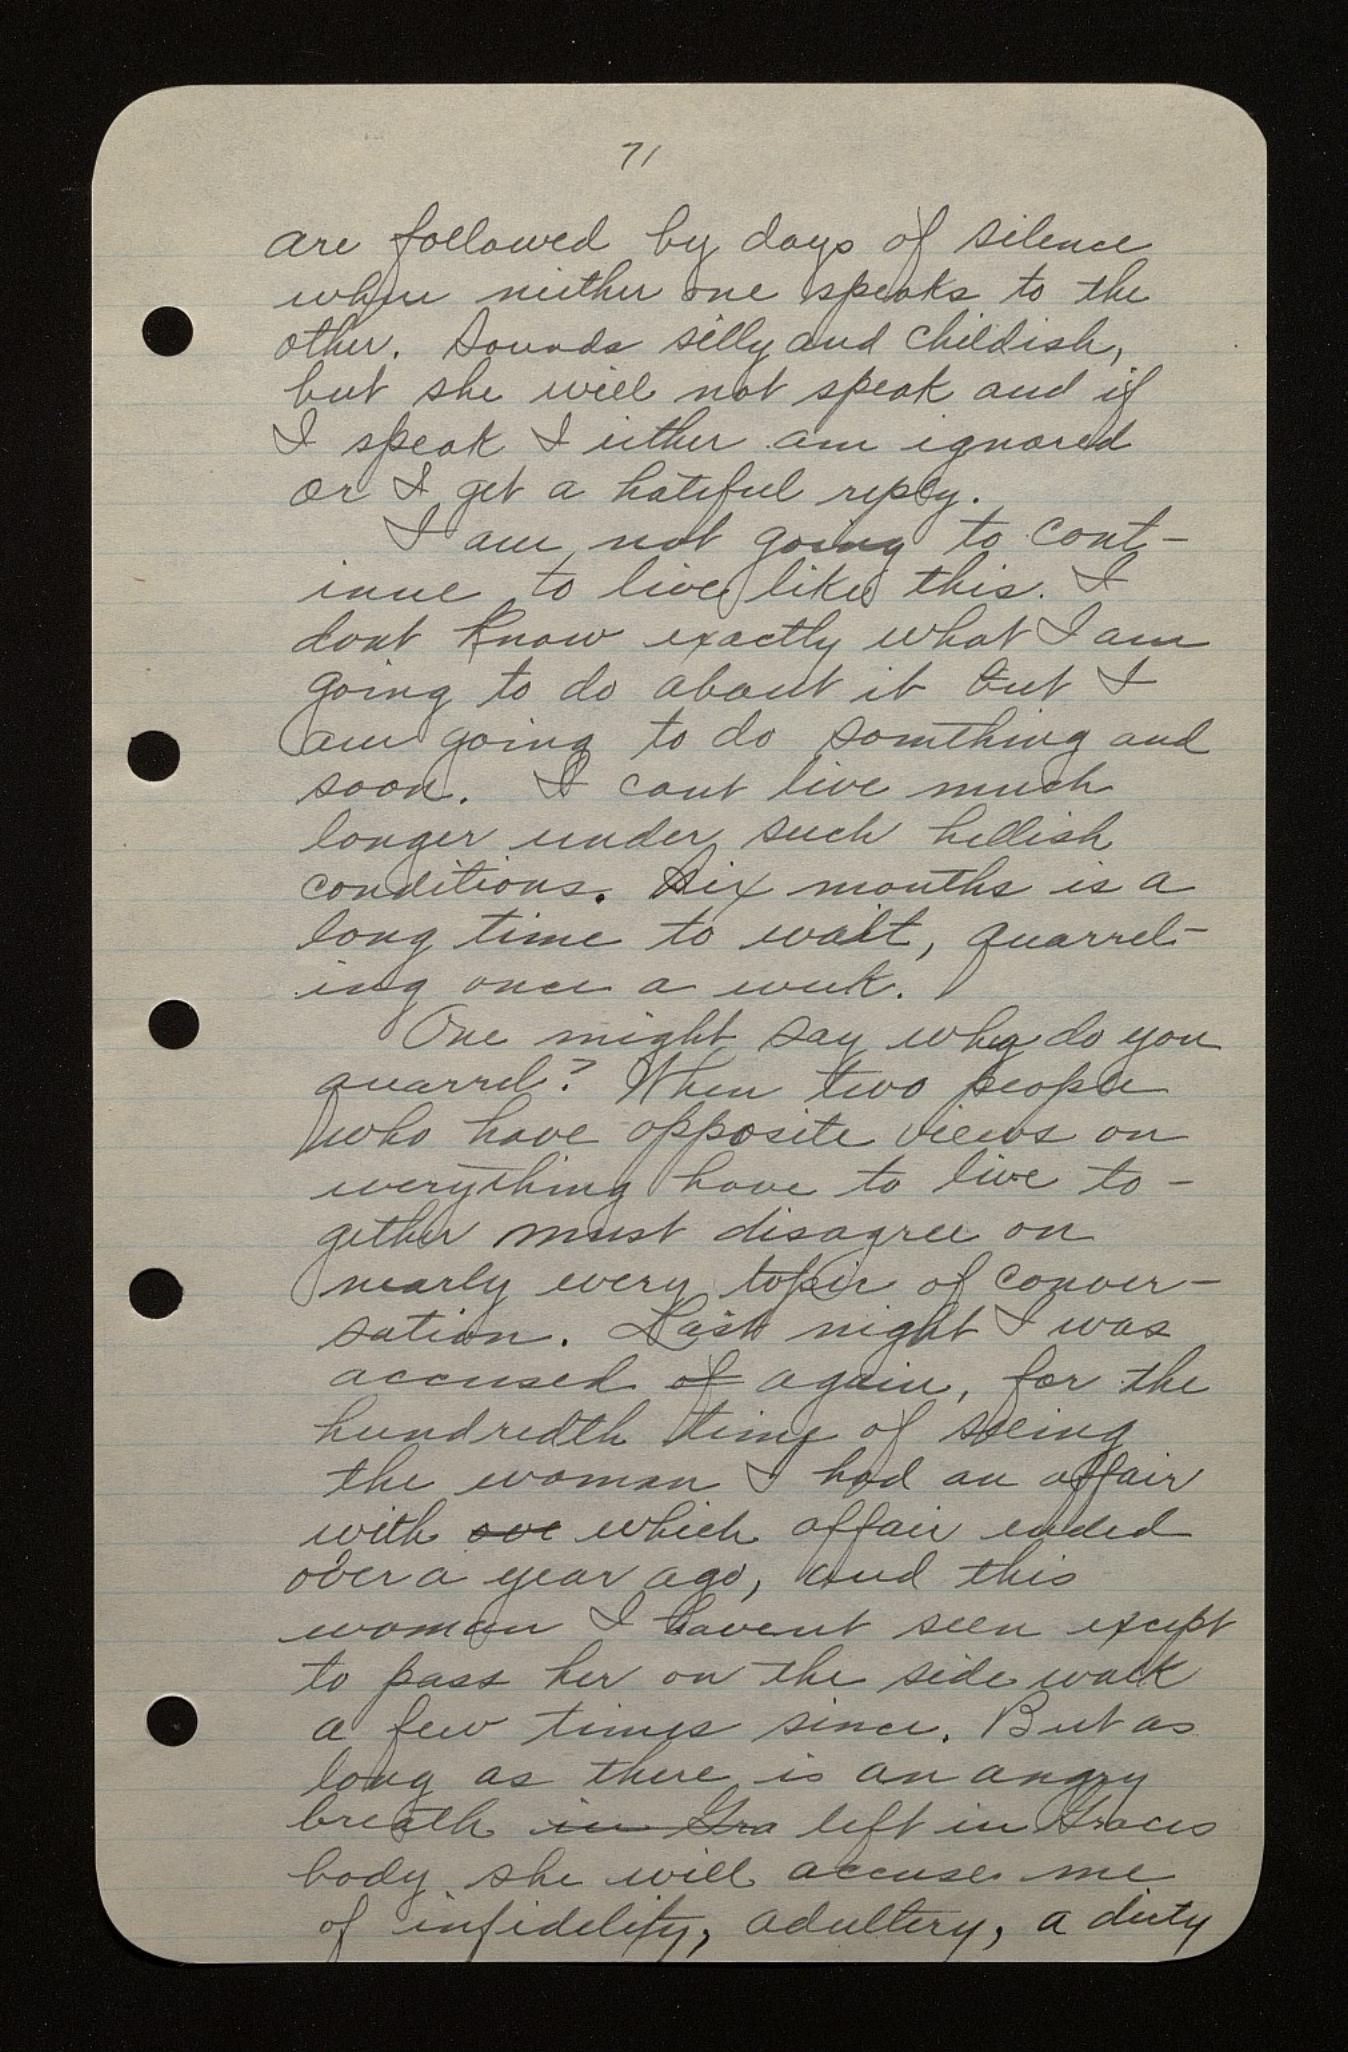 71
are followed by days of silence
when neither one speaks to the
other. Sounds silly and childish,
but she will not speak and if
I speak I either am ignored
or I get a hateful reply.
I am not going to cont-
inue to live like this. I
dont know exactly what I am
going to do about it but I
am going to do something and
soon. I cant live much
longer under such hellish
conditions. Six months is a
long time to wait, quarrel-
ing once a week.
One might say why do you
quarrel? When two people
who have opposite views on
everything have to live to-
gether must disagree on
nearly every topic of conver-
sation. Last night I was
accused of again, for the
hundredth time of seeing
the woman I had an affair
with ove which affair ended
over a year ago, and this
woman I havent seen except
to pass her on the side walk
a few times since. But as
long as there is an angry
breath in Gra left in Graces
body she will accuse me
of infidelity, adultery, a dirty